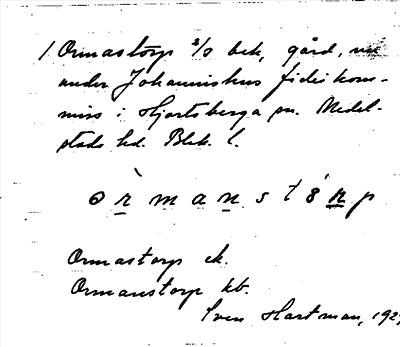 1 Ormastorp 3/8 bek, gård, nu
under Johannishus fideikom-
miss i Hjortsberga sn. Medel-
stads hd. Blek. l.
òr̲man̲stór̲p
Ormastorp ek.
Ormanstorp kb.
Sven Hartman, 192